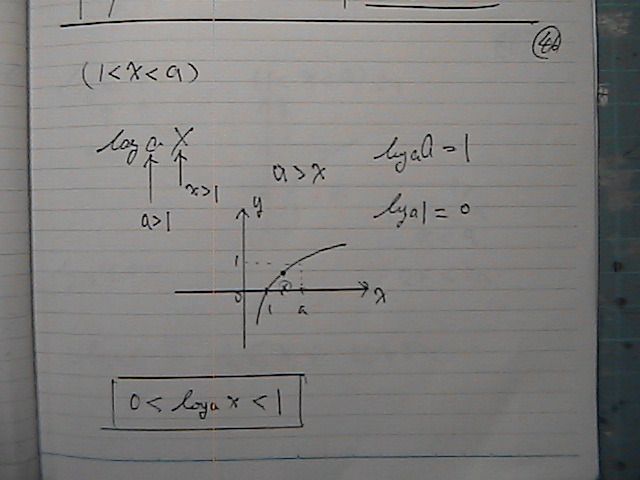 (1<x<a)
log a x
x>1
a>1
a>x
log a a = 1
log a 1 = 0
y
1
0
1
a
x
0 < log a x < 1